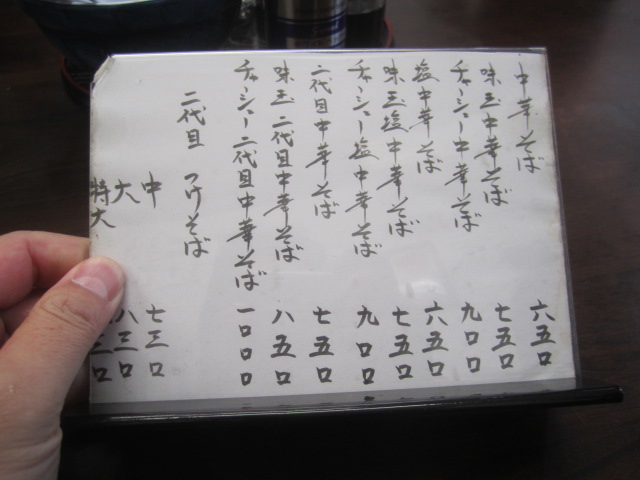 中華そば 六五〇
味玉中華そば 七五〇
チャーシュー中華そば 九〇〇
塩中華そば 六五〇
味玉塩中華そば 七五〇
チャーシュー塩中華そば 九〇〇
二代目中華そば 七五〇
味玉二代目中華そば 八五〇
チャーシュー二代目中華そば 一〇〇〇
二代目 つけそば
中 七三〇
大 八三〇
特大 三〇